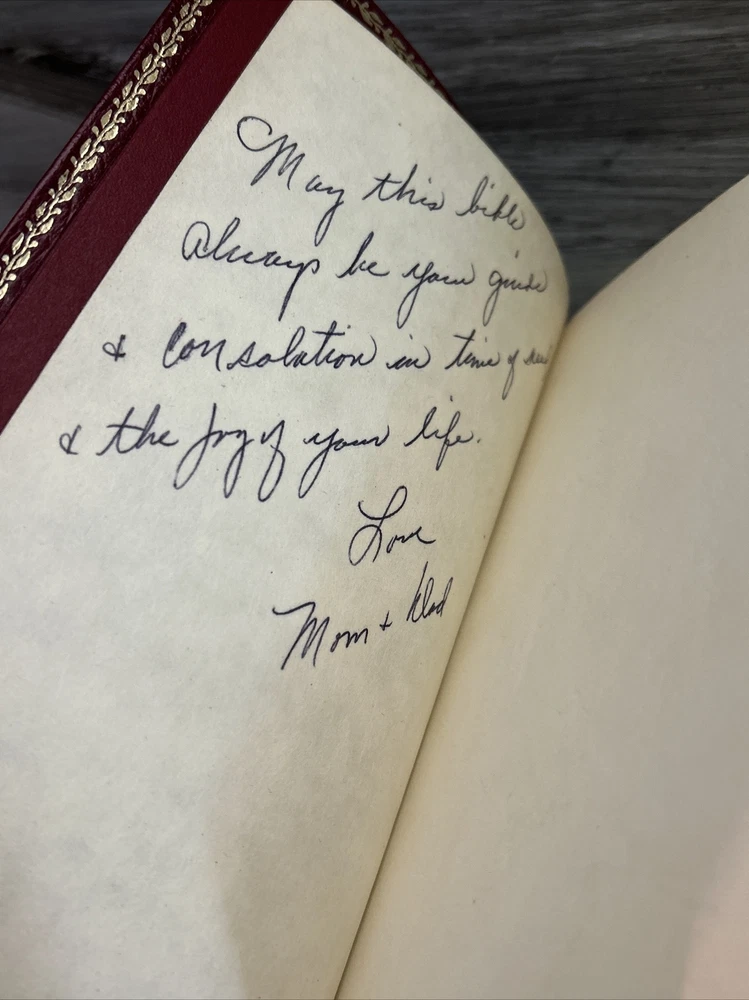 May this bible
always be your guide
& consolation in time of
& the Joy of your life.
Love
Mom + Dad